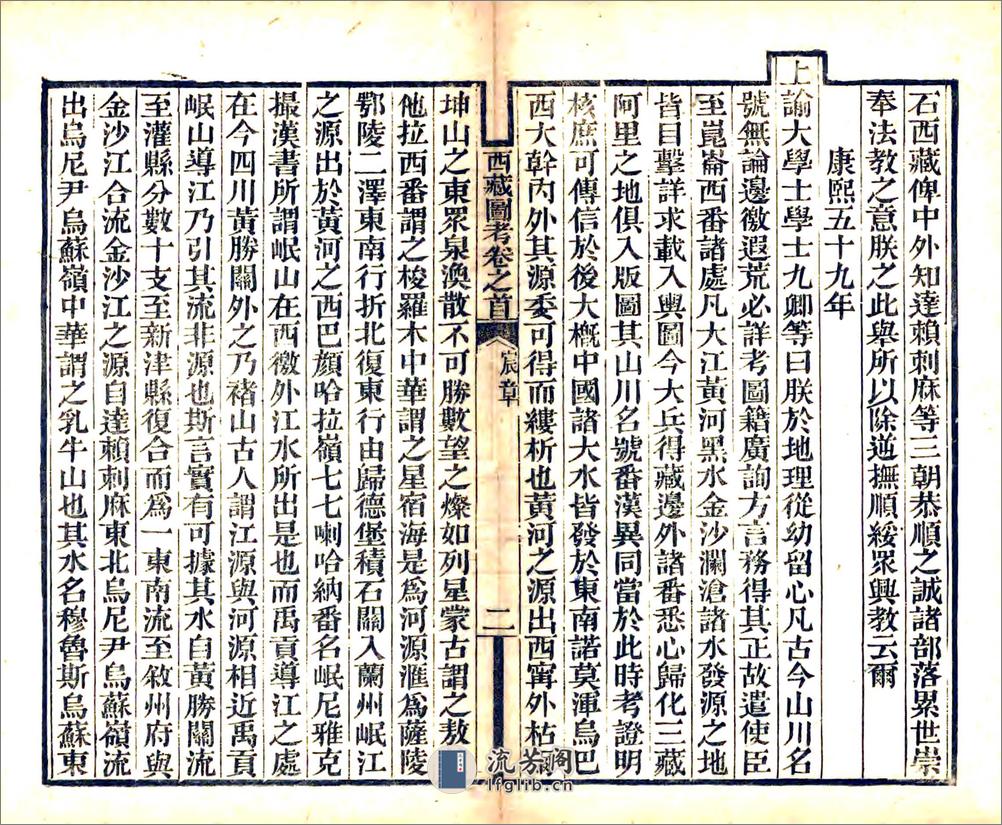 石西藏俾中外知達賴剌麻等三朝恭順之誠諸部落累世崇
奉法教之意朕之此舉所以除逆撫順綏眾興教云爾
康熙五十九年
上諭大學士學士九卿等曰朕於地理從幼留心凡古今山川名
號無論邊徼遐荒必詳考圖籍廣詢方言務得其正故遣使臣
至崑崙西番諸處凡大江黃河黑水金沙瀾滄諸水發源之地
皆目擊詳求載入輿圖今大兵得藏邊外諸番悉心歸化三藏
阿里之地俱入版圖其山川名號番漢異同當於此時考證明
核庶可傳信於後大概中國諸大水皆發於東南諾莫渾烏巴
西大幹內外其源委可得而縷析也黃河之源出西寧外枯
西藏圖考卷之首 宸章 二
坤山之東眾泉渙散不可勝數望之燦如列星蒙古謂之敖
他拉西番謂之梭羅木中華謂之星宿海是為河源滙為薩陵
鄂陵二澤東南行折北復東行由歸德堡積石關入蘭州岷江
之源出於黃河之西巴顏哈拉嶺七七喇哈納番名岷尼雅克
撮漢書所謂岷山在西徼外江水所出是也而禹貢導江之處
在今四川黃勝關外之乃褚山古人謂江源與河源相近禹貢
岷山導江乃引其流非源也斯言實有可據其水自黃勝關流
至灌縣分數十支至新津縣復合而為一東南流至敘州府與
金沙江合流金沙江之源自達賴剌麻東北烏尼尹烏蘇嶺流
出烏尼尹烏蘇嶺中華謂之乳牛山也其水名穆魯斯烏蘇東
流芳閣
lfglib.cn